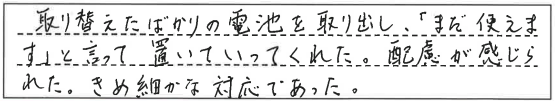 取り替えたばかりの電池を取り出し、「まだ使えま
す」と言って置いていってくれた。配慮が感じら
れた。きめ細かな対応であった。